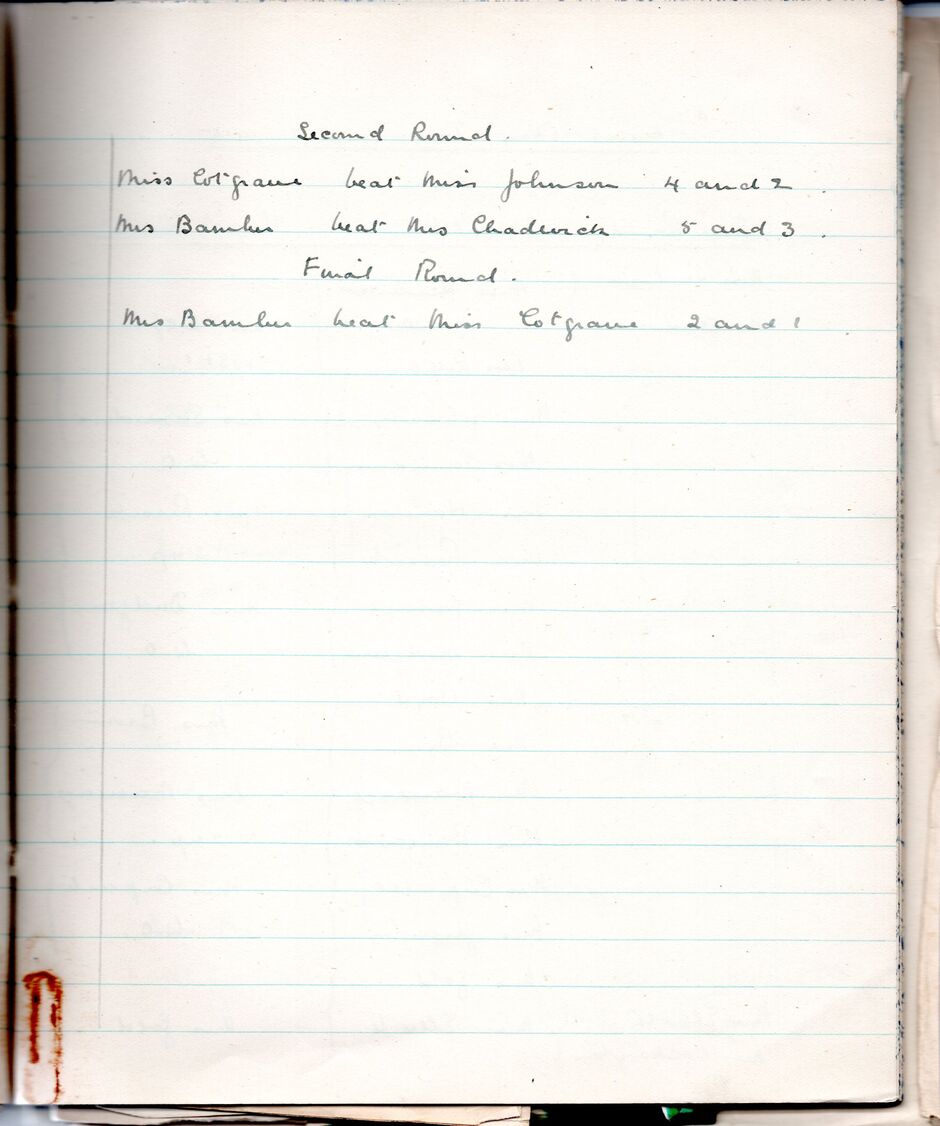 Second Round.
Miss Cotgrave beat Miss Johnson 4 and 2.
Mrs Bamber beat Mrs Chadwick 5 and 3.
Final Round.
Mrs Bamber beat Miss Cotgrave 2 and 1.